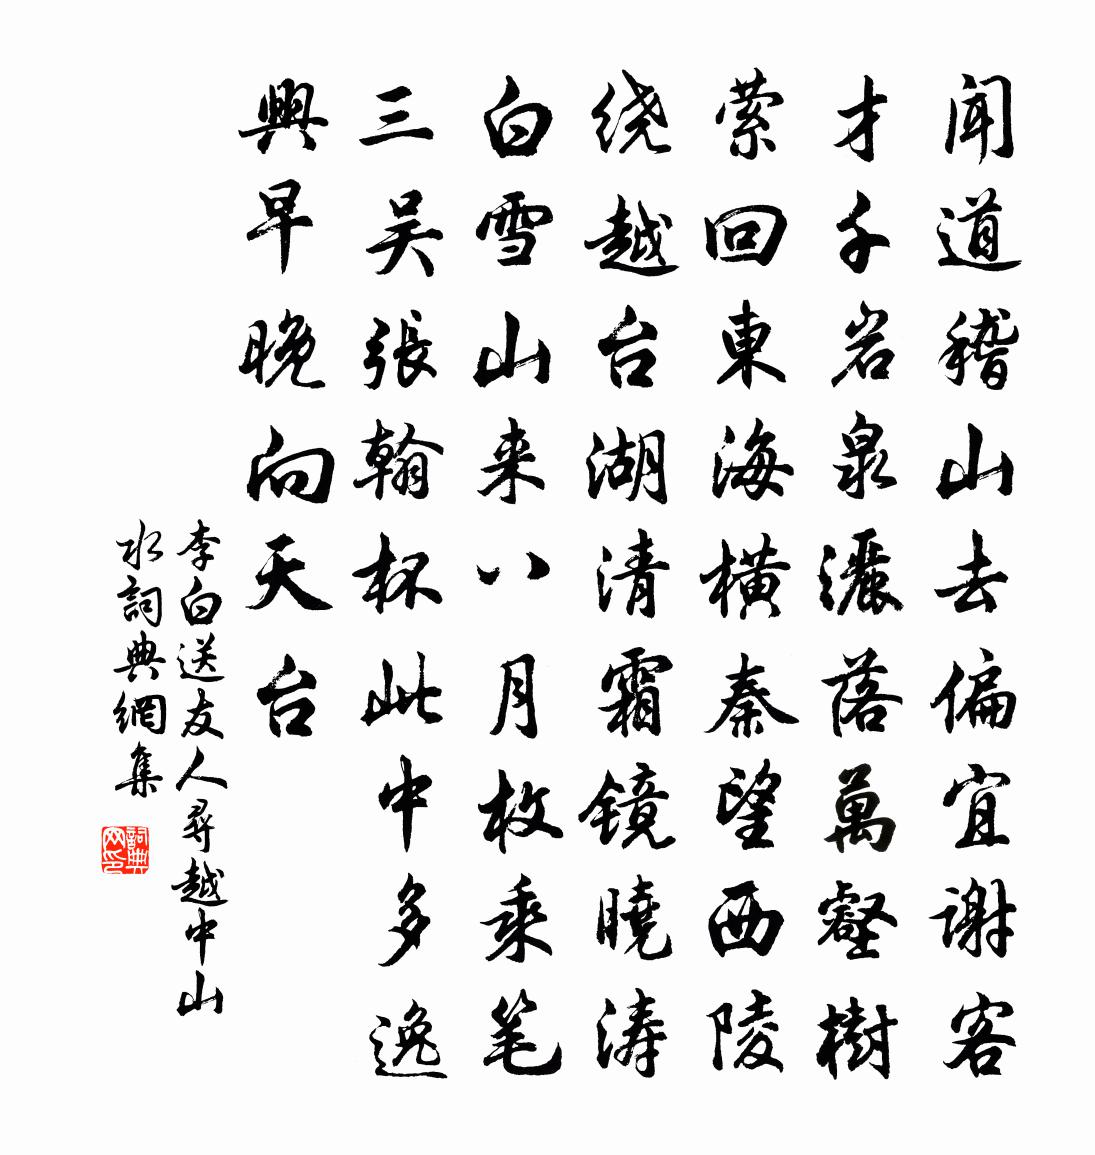 闻道稽山去偏宜谢客
才千岩泉灑落萬壑樹
萦回東海横秦望西陵
绕越台湖清霜镜曉涛
白雪山来八月枚乘笔
三吴張翰杯此中多逸
興早晚向天台
李白送友人尋越中山
水詞典網集
詞典网印